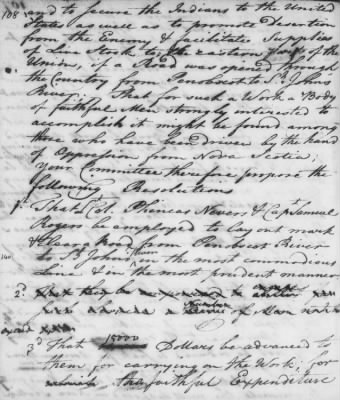 108 and to secure the Indians to the United
States as well as to promote Desertion
from the Enemy & facilitate Supplies
of Live Stock to the Eastern part of the
Union, if a Road was opened through
the Country from Penobscot to St. Johns
River; That for such a Work a Body
of faithful Men strongly interested to
accomplish it might be found among
those who have been driven by the hand
of Oppression from Nova Scotia;
Your Committee therefore propose the
following Resolutions
1st That Lt. Col. Phineas Nevers & Capt. Samuel
Rogers be employed to lay out mark
& clear a Road from Penobscot River
to St. Johns River, in the most commodious
Line & in the most prudent manner
2d.
3d That 15000 Dollars be advanced to
them for carrying on the Work; for
the faithful Expenditure